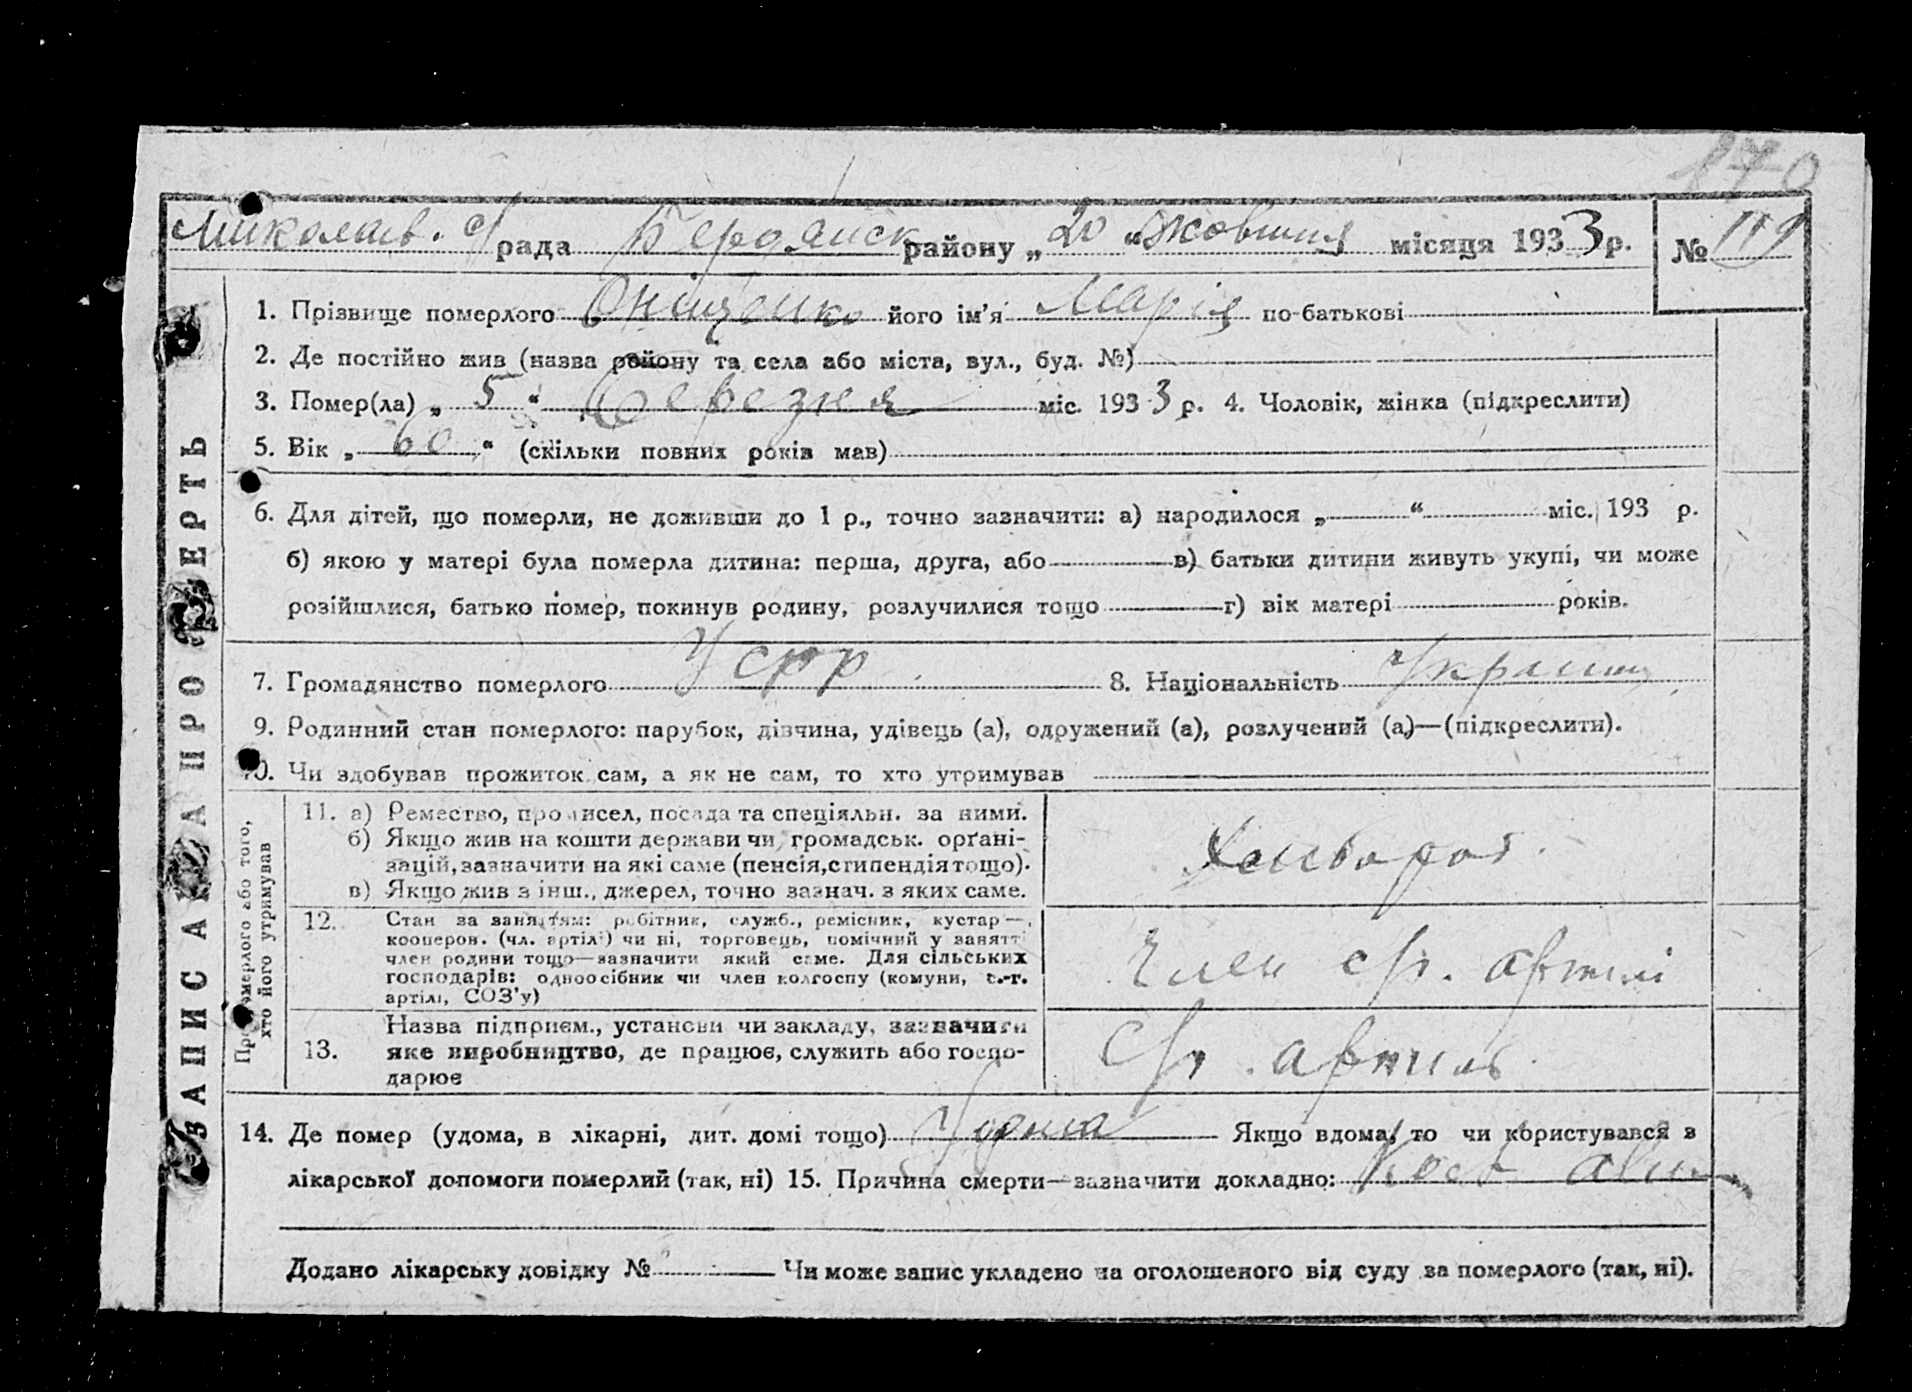 170
Миколаїв. с/рада Бердянск району „20“ жовтня місяця 1933 р. № 119
1. Прізвище померлого Оніщенко його ім’я Марія по-батькові
2. Де постійно жив (назва району та села або міста, вул., буд. №)
3. Помер(ла) „5“ березня міс. 1933 р. 4. Чоловік, жінка (підкреслити)
5. Вік „60“ (скільки повних років мав)
6. Для дітей, що померли, не доживши до 1 р., точно зазначити: а) народилося „ “ міс. 193 р.
б) якою у матері була померла дитина: перша, друга, або в) батьки дитини живуть укупі, чи може
розійшлися, батько помер, покинув родину, розлучилися тощо г) вік матері років.
7. Громадянство померлого УСРР 8. Національність Украинц
9. Родинний стан померлого: парубок, дівчина, удівець (а), одружений (а), розлучений (а)—(підкреслити).
10. Чи здобував прожиток сам, а як не сам, то хто утримував
ЗАПИС АКТА ПРО СМЕРТЬ
Про померлого або того,
хто його утримував
11. а) Ремество, промисел, посада та спеціяльн. за ними.
б) Якщо жив на кошти держави чи громадськ. орґані-
зацій, зазначити на які саме (пенсія, стипендія тощо).
в) Якщо жив з інш., джерел, точно зазнач. з яких саме.
Хлібороб.
12. Стан за заняттям: робітник, служб., ремісник, кустар—,
кооперов. (чл. артілі) чи ні, торговець, помічний у занятті
член родини тощо—зазначити який саме. Для сільських
господарів: одноосібник чи член колгоспу (комуни, с.-г.
артілі, СОЗ’у)
Член с/г. артілі
13. Назва підприєм., установи чи закладу, зазначити
яке виробництво, де працює, служить або госпо-
дарює
С/г. артиль
14. Де помер (удома, в лікарні, дит. домі тощо) Удома Якщо вдома, то чи користувався з
лікарської допомоги померлий (так, ні) 15. Причина смерти—зазначити докладно:
Додано лікарську довідку № Чи може запис укладено на оголошеного від суду за померлого (так, ні).